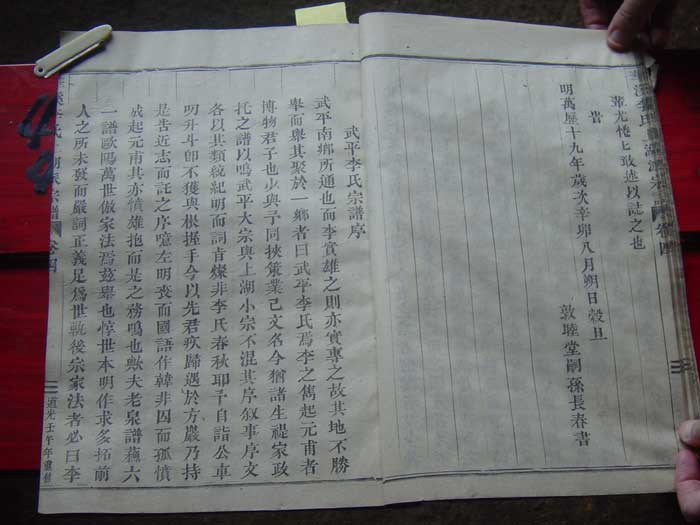 輩尤惓七敢述以誌之也
峕
明萬曆十九年歲次辛卯八月朔日穀旦
敦睦堂嗣孫長春書
武平李氏宗譜序
武平南鄉所通也而李實雄之則亦實專之故其地不勝
舉而舉其聚於一鄉者曰武平李氏焉李之儁起元甫者
博物君子也少與予同挾策業已文名今猶諸生禔家政
托之譜以鳴武平大宗與上湖小宗不混其序叙事序文
各以其類統紀明而詞肯燦非李氏春秋耶予自詣公車
叨升斗卽不獲與根握手今以先君疾歸遇於方巖乃持
是告近志而託之序噫左明喪而國語作韓非囚而孤憤
成起元甫其亦憤雄抱而是之務鳴也歟夫老泉譜蘓六
一譜歐陽萬世倣家法焉兹舉也惇世本明作求多拓前
人之所未發而嚴詞正義足為世執後宗家法者必曰李
卷四
道光壬午年重修